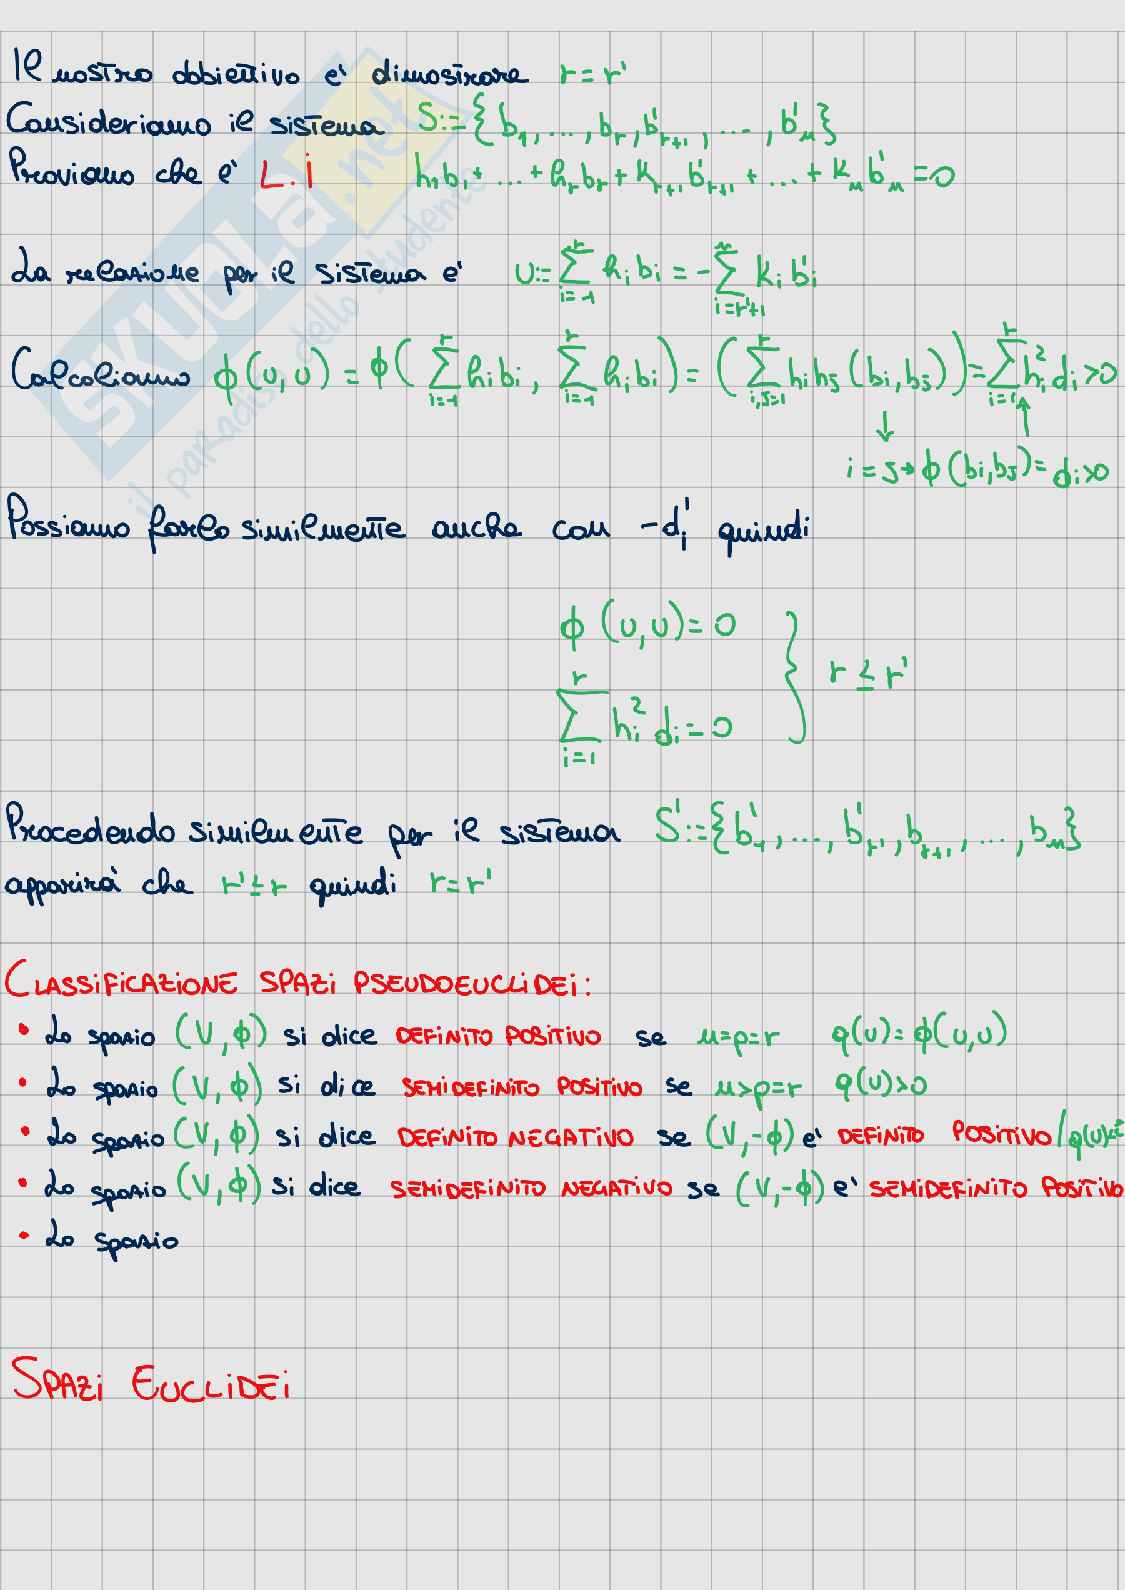 Il nostro obbiettivo e' dimostrare r = r'
Consideriamo il sistema S := { b₁, ..., bᵣ, b'ᵣ₊₁, ..., b'ₙ }
Proviamo che e' L.i h₁b₁ + ... + hᵣbᵣ + kᵣ₊₁b'ᵣ₊₁ + ... + kₙb'ₙ = 0
La relazione per il sistema e' u := ∑_{i=1}^{r} hᵢbᵢ = -∑_{i=r'+1}^{n} kᵢb'ᵢ
Calcoliamo ϕ(u,u) = ϕ( ∑_{i=1}^{r} hᵢbᵢ, ∑_{i=1}^{r} hᵢbᵢ ) = ( ∑_{i,j=1}^{r} hᵢhⱼ (bᵢ,bⱼ) ) = ∑_{i=1}^{r} hᵢ² dᵢ > 0
↓ ↑
i = j → ϕ(bᵢ,bⱼ) = dᵢ > 0
Possiamo farlo similmente anche con -d'ᵢ quindi
ϕ(u,u) = 0
∑_{i=1}^{r} hᵢ² dᵢ = 0 } r ≤ r'
Procedendo similmente per il sistema S' := { b'₁, ..., b'ᵣ', bᵣ₊₁, ..., bₙ }
apparirà che r' ≤ r quindi r = r'
CLASSIFICAZIONE SPAZI PSEUDOEUCLIDEI:
• Lo spazio (V,ϕ) si dice DEFINITO POSITIVO se n=p=r q(u) = ϕ(u,u)
• Lo spazio (V,ϕ) si dice SEMIDEFINITO POSITIVO se n>p=r q(u)>0
• Lo spazio (V,ϕ) si dice DEFINITO NEGATIVO se (V,-ϕ) e' DEFINITO POSITIVO / q(u)<
• Lo spazio (V,ϕ) si dice SEMIDEFINITO NEGATIVO se (V,-ϕ) e' SEMIDEFINITO POSITIVO
• Lo spazio
SPAZI EUCLIDEI
SKUOLA.net
il paradiso dello studente